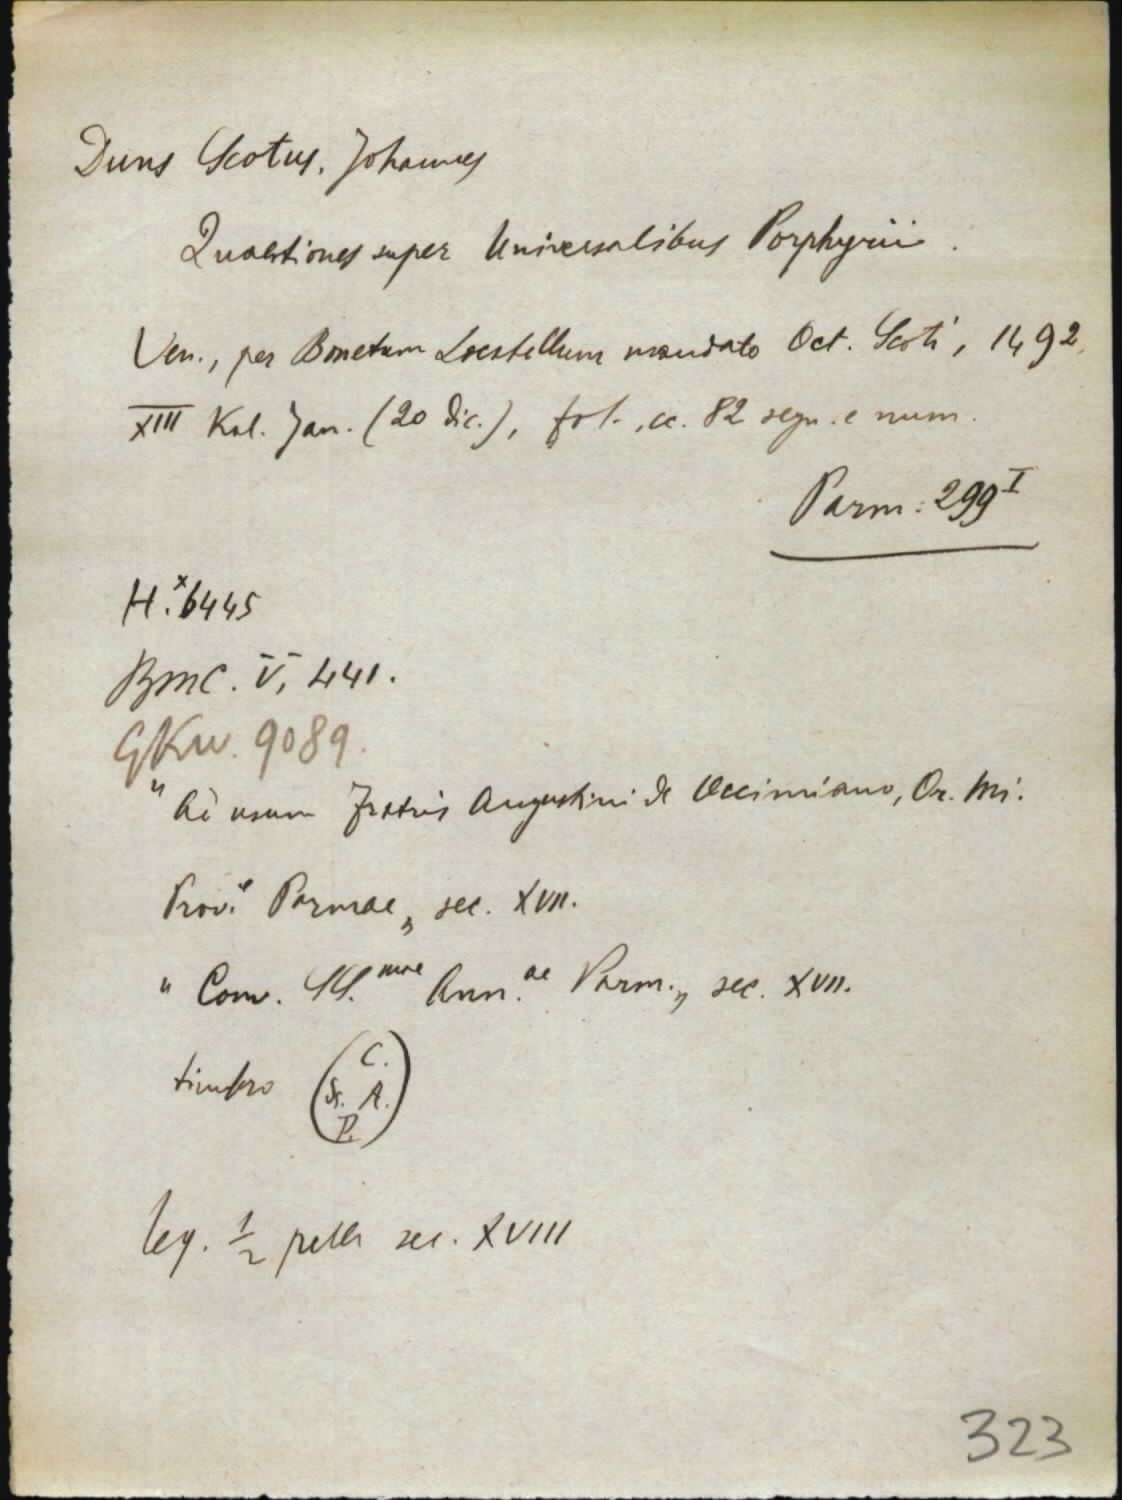 Duns Scotus, Johannes
Quaestiones super Universalibus Porphyrii.
Ven., per Bonetum Locatellum mandato Oct. Scoti, 1492,
XIII Kal. Jan. (20 dic.), fol., cc. 82 segn. e num.
Parm. 299 I
H.x 6445
BMC. V, 441.
GKW. 9089.
"Ad usum Fratris Augustini de Occimiano, Or. Mi.
Prov.e Parmae", sec. XVII.
"Conv. SS.mae Ann.ae Parm.", sec. XVII.
timbro C.
SS. A.
P.
leg. 1/2 pelle sec. XVIII
323